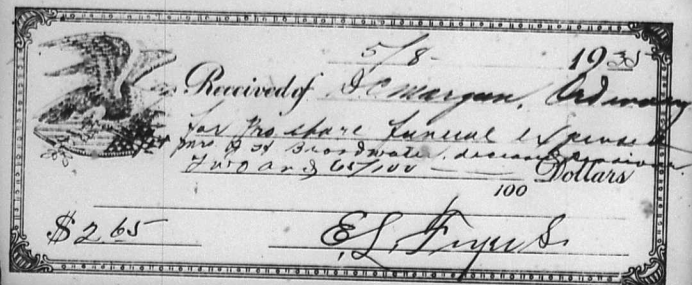 5/8 1938
Received of J. C. Morgan, Ordinary
for pro share funeral expense
mrs Broadwater, deceased pensioner
Two and 65/100
100 Dollars
$2.65
E. L.